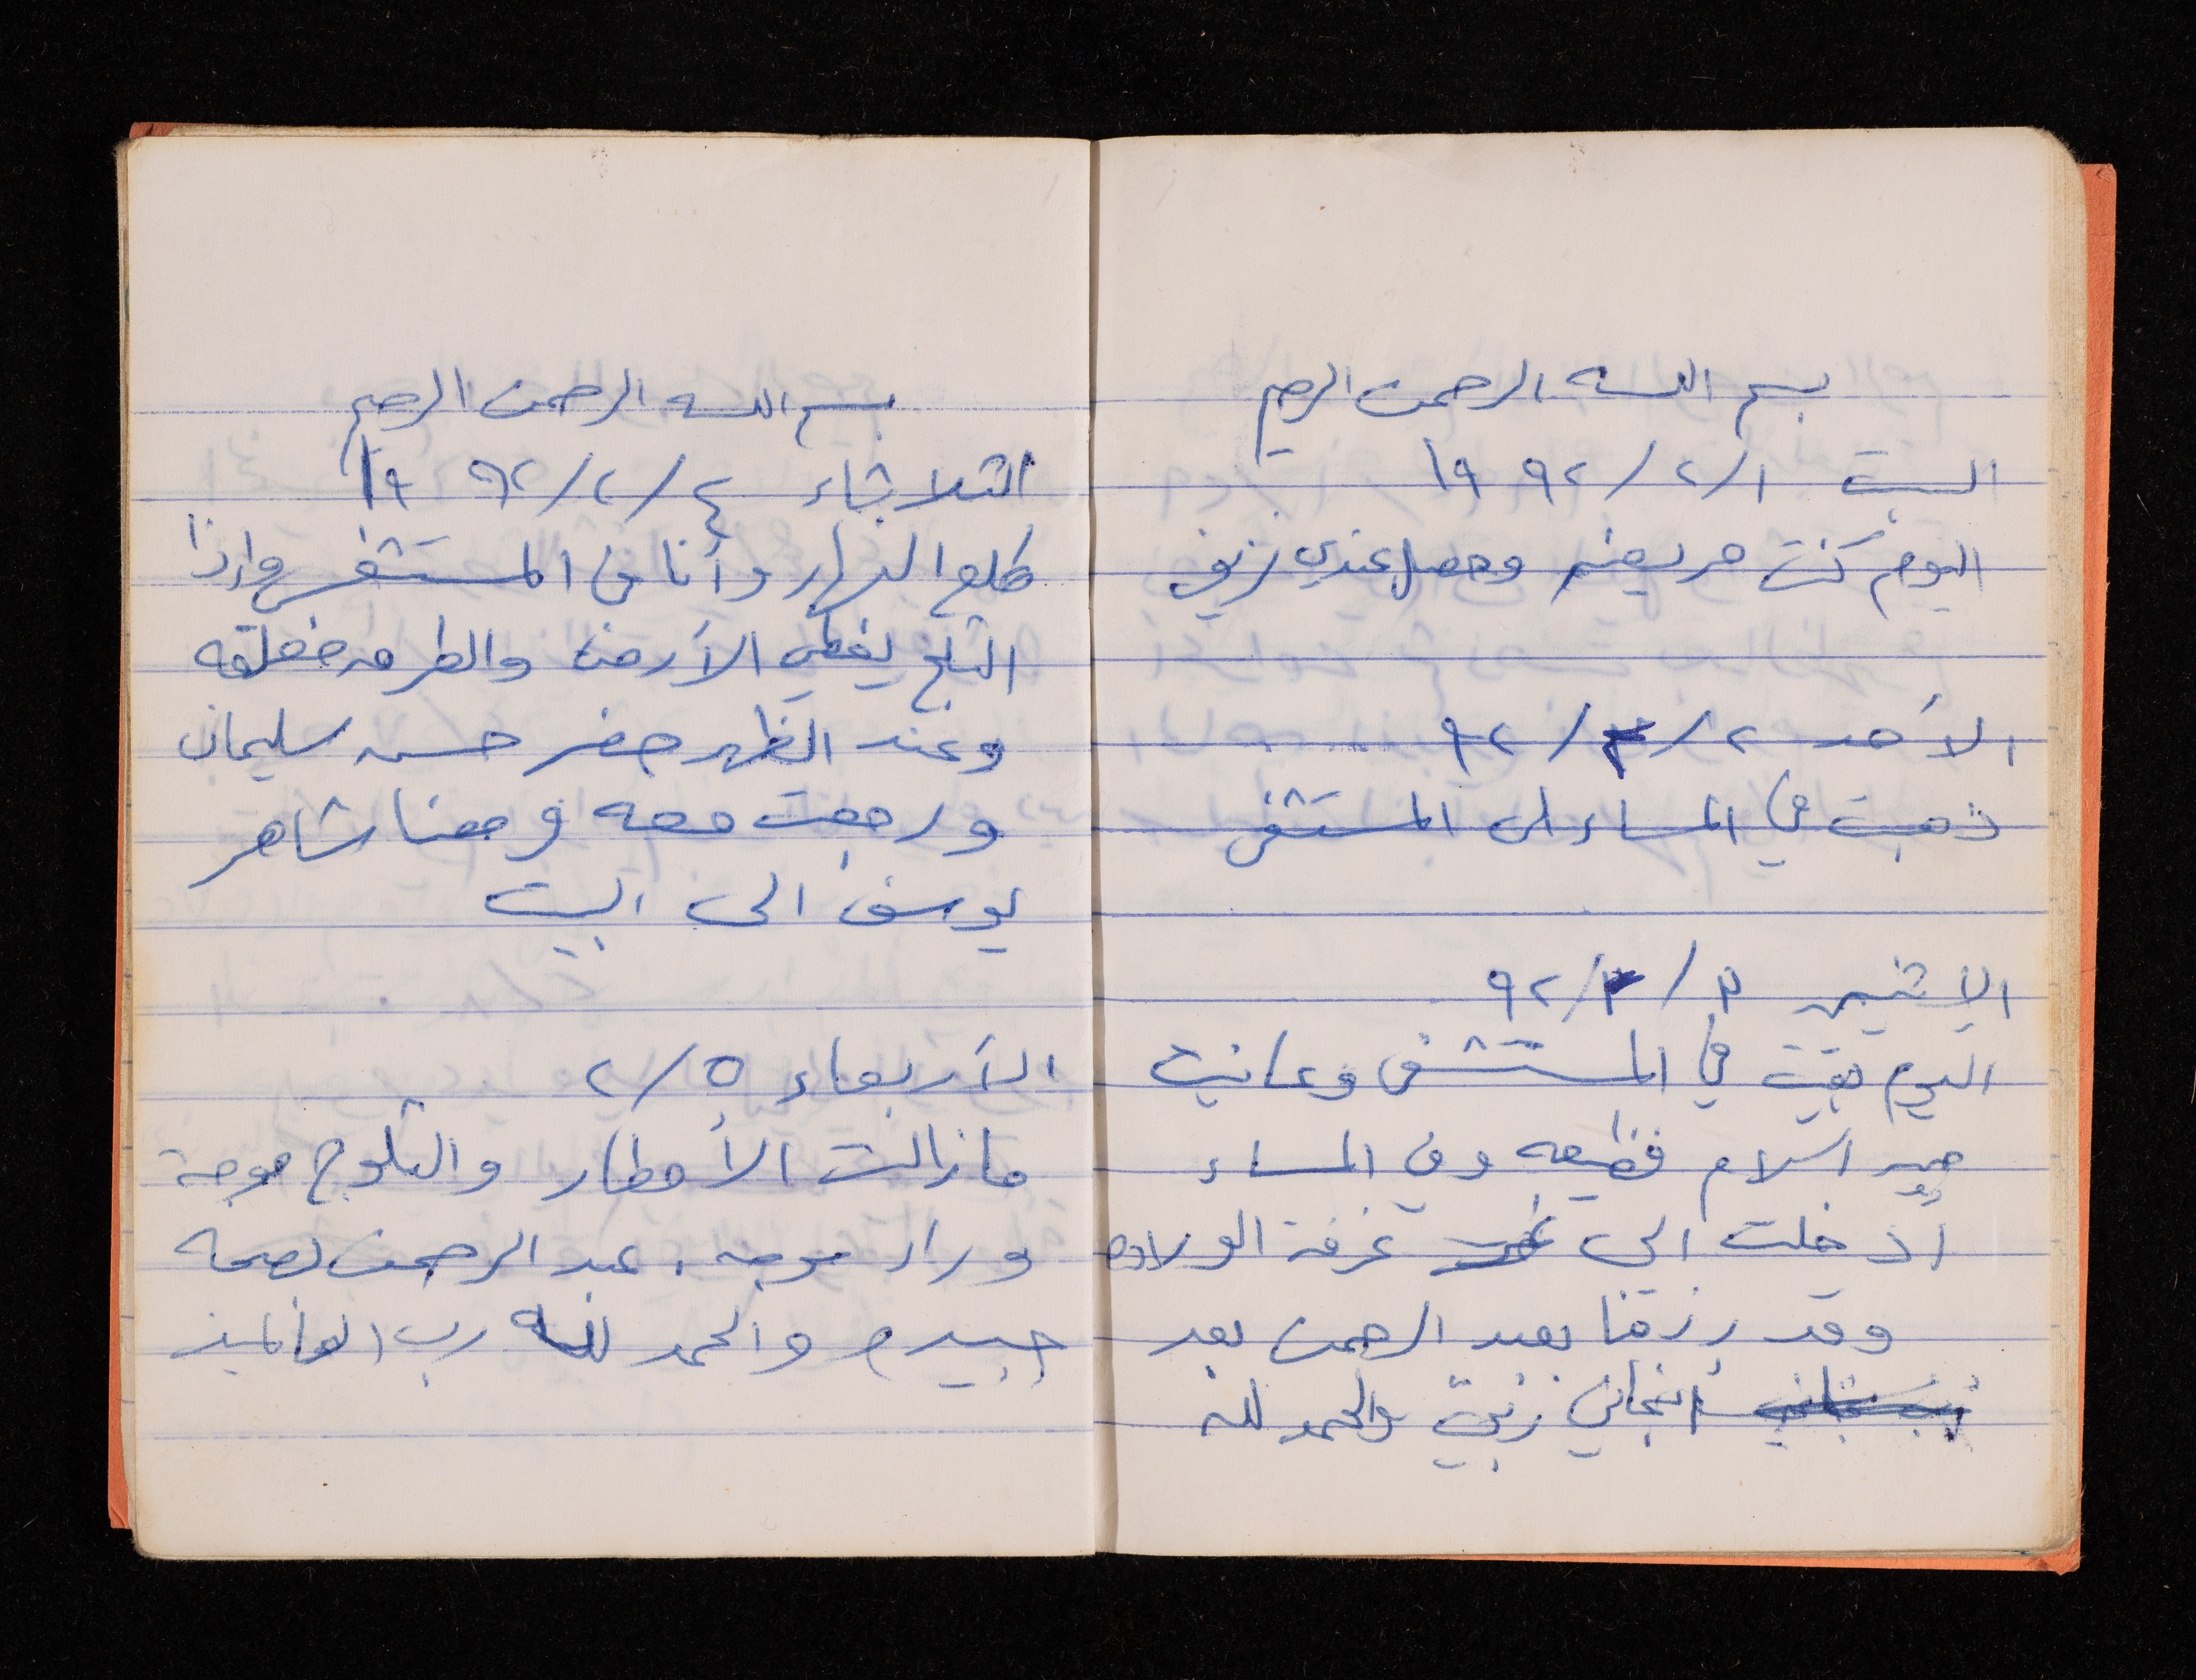 بسم الله الرحمن الرحيم
السبت ١/٢/١٩٩٢
اليوم كنت مريضه وحصل عندي نزيف
الأحد ٢/٢/٩٢
ذهبت في المساء الى المستشفى
الاثنين ٣/٢/٩٢
اليوم بقيت في المستشفى وعانيت
من الام فظيعه وفي المساء
أدخلت الى غرفة الولاده
وقد رزقنا بعبد الرحمن بعد
أنجاني ربي والحمد لله
بسم الله الرحمن الرحيم
الثلاثاء ٤/٢/١٩٩٢
طلع النهار وأنا في المستشفى وإذا
الثلج يغطي الأرض والطرق مغلقه
وعند الظهر حضر حسن سليمان
ورجعت معه ومعنا شاهر
يوسف الى البيت
الأربعاء ٥/٢
مازالت الأمطار والثلوج موجة
وراء موجه. عبد الرحمن بصحه
جيده والحمد لله رب العالمين